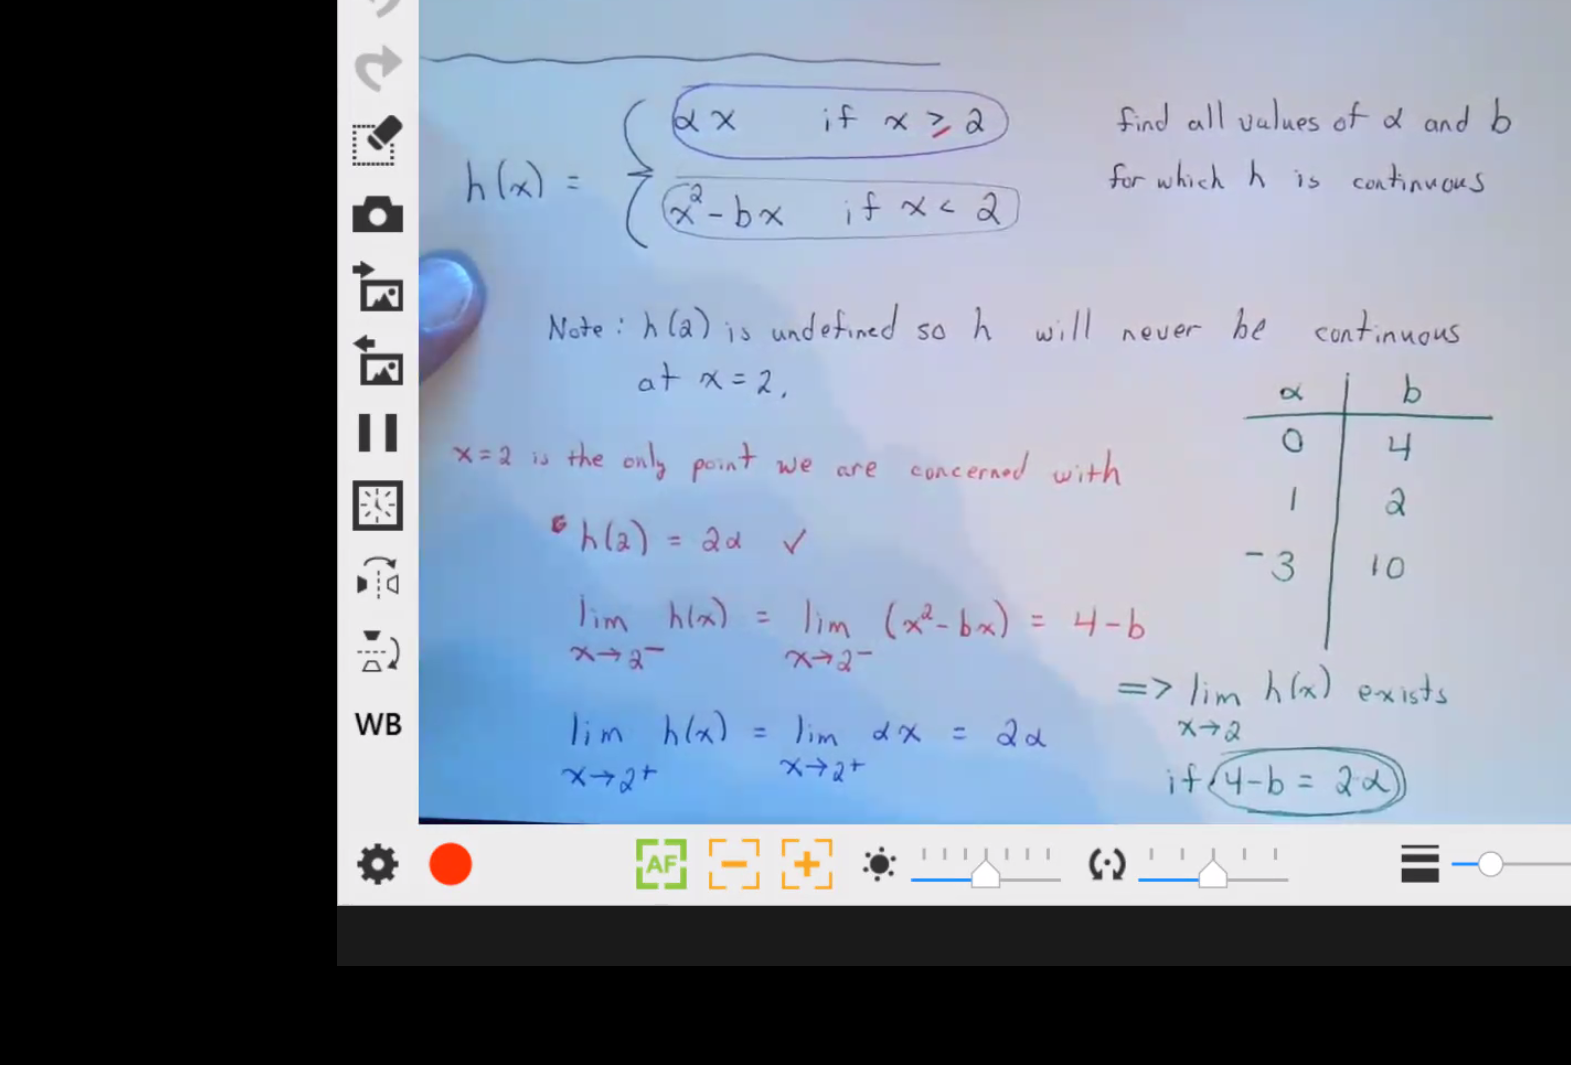 h(x) = { αx if x ≥ 2
x² - bx if x < 2
find all values of α and b
for which h is continuous
Note: h(2) is undefined so h will never be continuous
at x = 2.
x = 2 is the only point we are concerned with
h(2) = 2α ✓
lim h(x) = lim (x² - bx) = 4 - b
x→2⁻ x→2⁻
lim h(x) = lim αx = 2α
x→2⁺ x→2⁺
α b
0 4
1 2
-3 10
=> lim h(x) exists
x→2
if 4-b = 2α
WB
AF